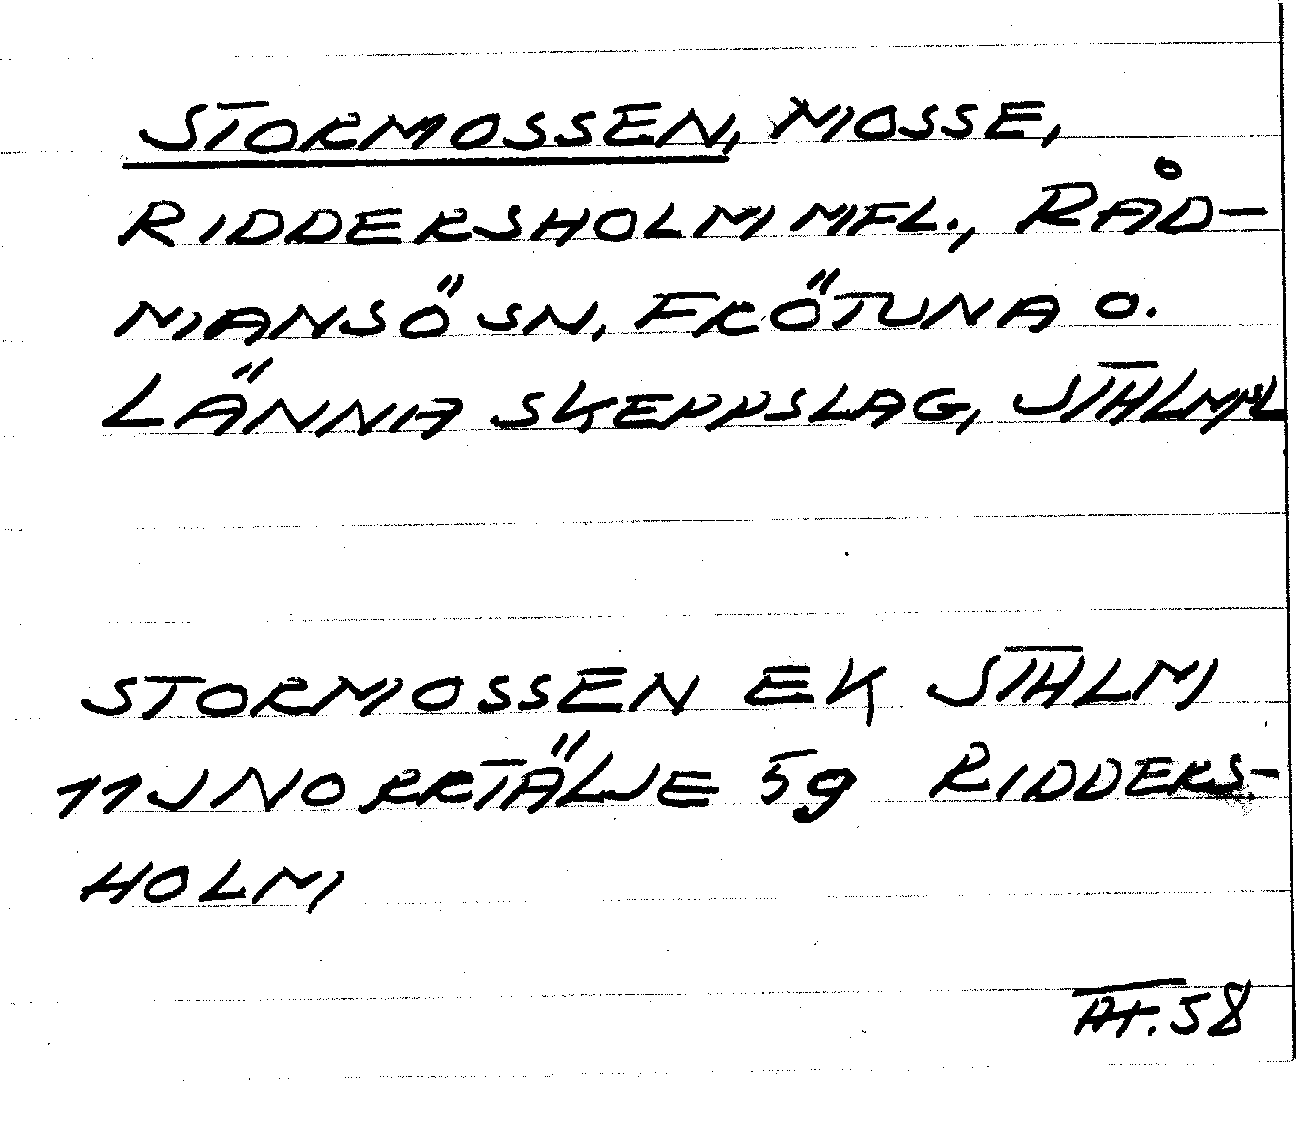 STORMOSSEN, MOSSE,
RIDDERSHOLM MFL., RÅD-
MANSÖ SN, FRÖTUNA O.
LÄNNA SKEPPSLAG, STHLM L
STORMOSSEN EK STHLM
11J NORRTÄLJE 5g RIDDERS-
HOLM
AT. 58